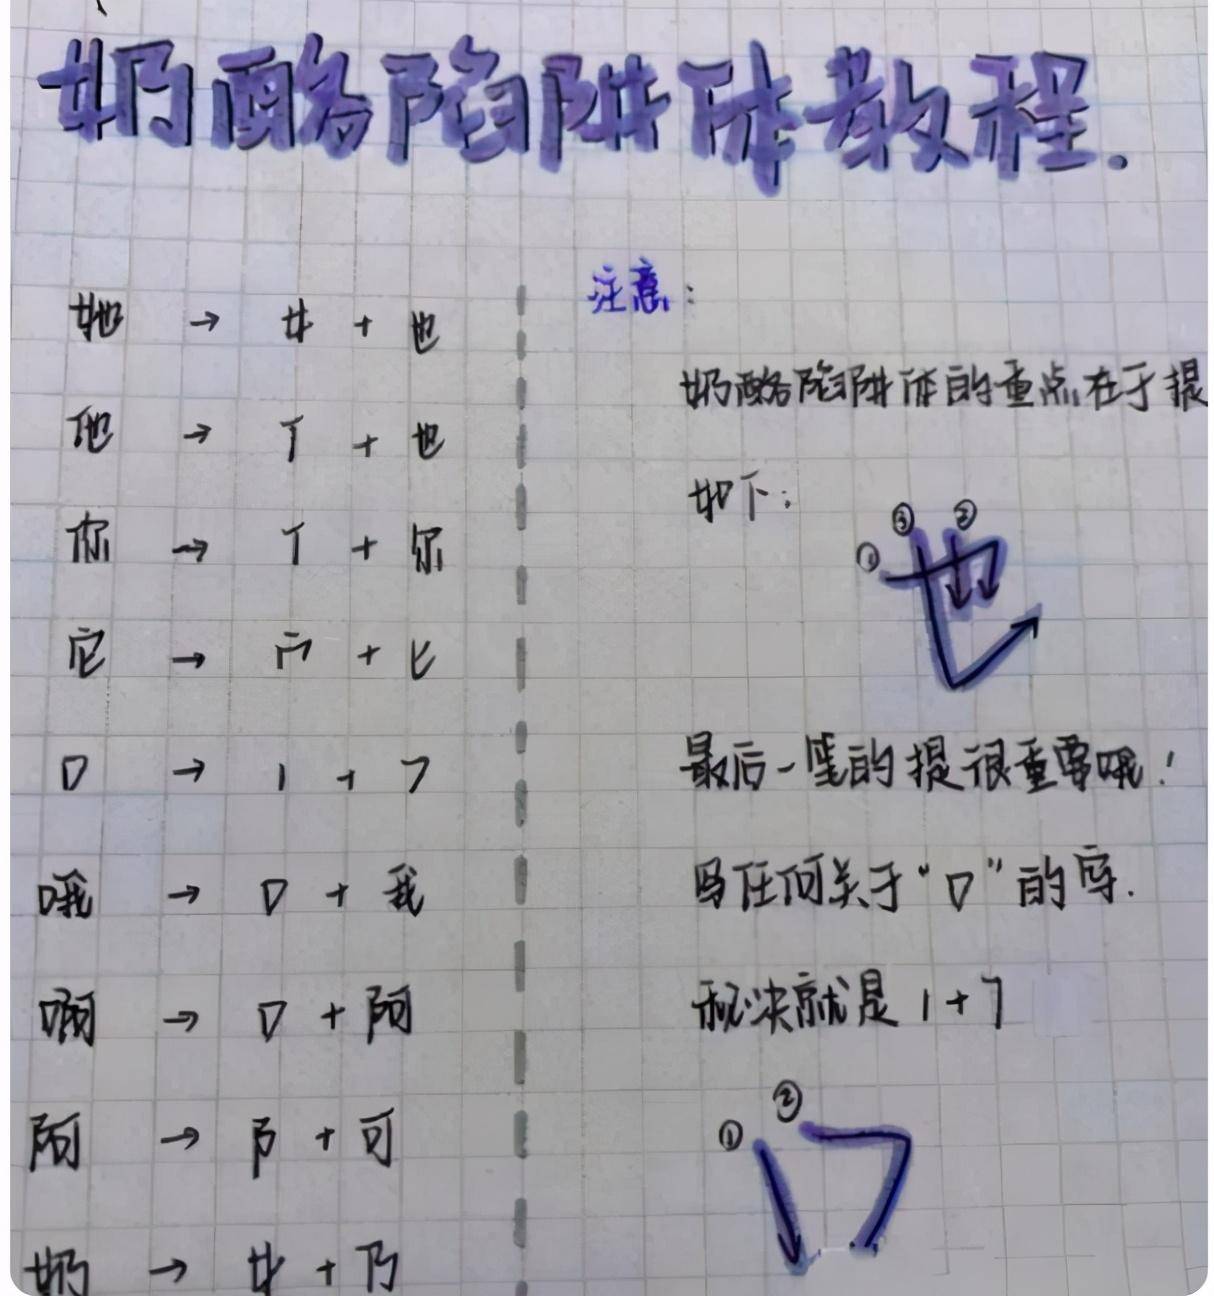 奶酪陷阱体教程.
她 → 女 + 也
他 → 亻 + 也
你 → 亻 + 尔
它 → 宀 + 匕
口 → 丨 + ㇆
哦 → 口 + 我
啊 → 口 + 阿
阿 → 阝 + 可
奶 → 女 + 乃
注意:
奶酪陷阱体的重点在于提
如下:
① ③ ②
也
最后一笔的提很重要哦!
写任何关于“口”的字.
秘决就是 1+7
① ②
口